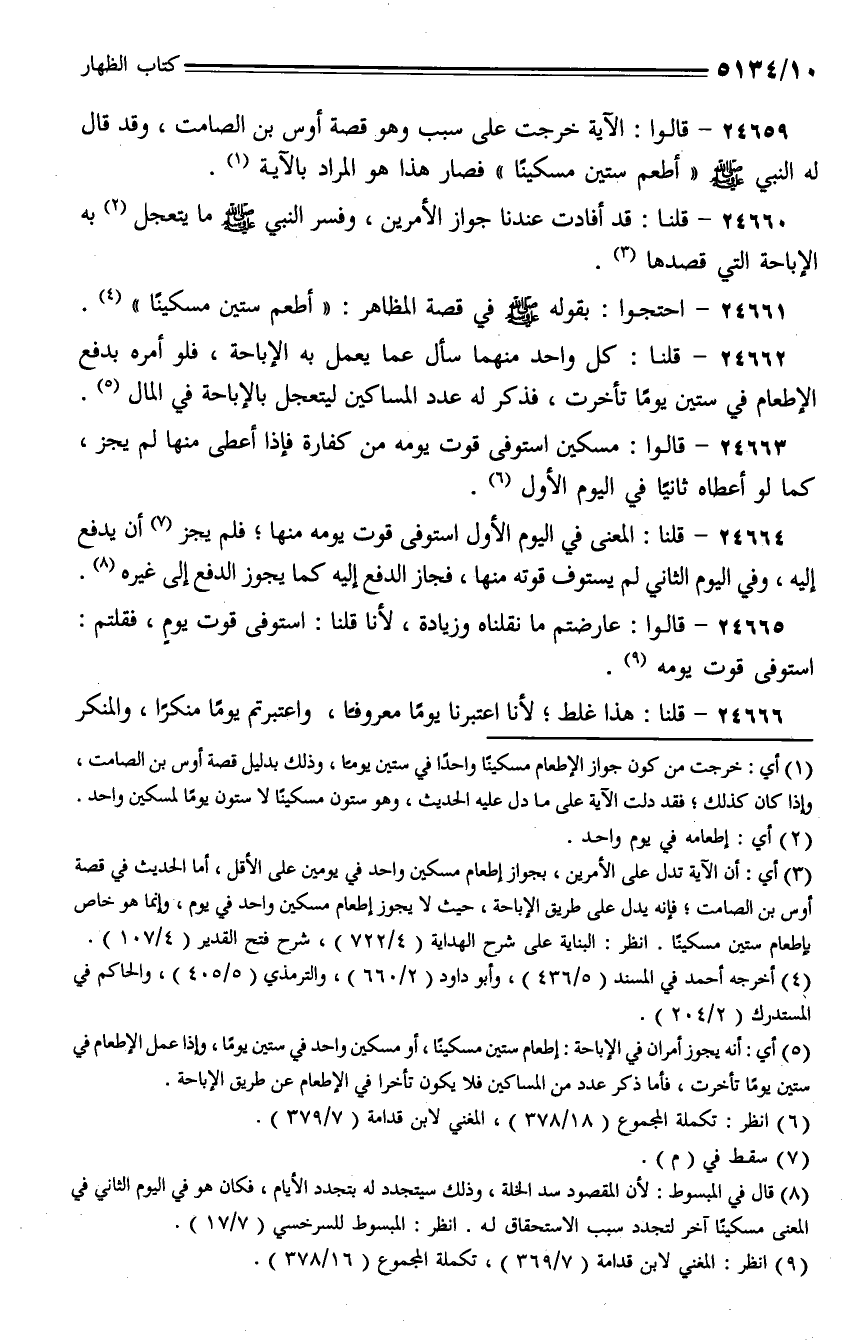 ٥١٣٤/١٠ كتاب الظهار
٢٤٦٥٩ - قالوا : الآية خرجت على سبب وهو قصة أوس بن الصامت ، وقد قال
له النبي ﷺ « أطعم ستين مسكينًا » فصار هذا هو المراد بالآية (١) .
٢٤٦٦٠ - قلنا : قد أفادت عندنا جواز الأمرين ، وفسر النبي ﷺ ما يتعجل (٢) به
الإباحة التي قصدها (٣) .
٢٤٦٦١ - احتجوا : بقوله ﷺ في قصة المظاهر : « أطعم ستين مسكينًا » (٤) .
٢٤٦٦٢ - قلنا : كل واحد منهما سأل عما يعمل به الإباحة ، فلو أمره بدفع
الإطعام في ستين يومًا تأخرت ، فذكر له عدد المساكين ليتعجل بالإباحة في المال (٥) .
٢٤٦٦٣ - قالوا : مسكين استوفى قوت يومه من كفارة فإذا أعطى منها لم يجز ،
كما لو أعطاه ثانيًا في اليوم الأول (٦) .
٢٤٦٦٤ - قلنا : المعنى في اليوم الأول استوفى قوت يومه منها ؛ فلم يجز (٧) أن يدفع
إليه ، وفي اليوم الثاني لم يستوف قوته منها ، فجاز الدفع إليه كما يجوز الدفع إلى غيره (٨) .
٢٤٦٦٥ - قالوا : عارضتم ما نقلناه وزيادة ، لأنا قلنا : استوفى قوت يومٍ ، فقلتم :
استوفى قوت يومه (٩) .
٢٤٦٦٦ - قلنا : هذا غلط ؛ لأنا اعتبرنا يومًا معروفًا ، واعتبرتم يومًا منكرًا ، والمنكر
(١) أي : خرجت من كون جواز الإطعام مسكينًا واحدًا في ستين يومًا ، وذلك بدليل قصة أوس بن الصامت ،
وإذا كان كذلك ؛ فقد دلت الآية على ما دل عليه الحديث ، وهو ستون مسكينًا لا ستون يومًا لمسكين واحد .
(٢) أي : إطعامه في يوم واحد .
(٣) أي : أن الآية تدل على الأمرين ، بجواز إطعام مسكين واحد في يومين على الأقل ، أما الحديث في قصة
أوس بن الصامت ؛ فإنه يدل على طريق الإباحة ، حيث لا يجوز إطعام مسكين واحد في يوم ، وإنما هو خاص
بإطعام ستين مسكينًا . انظر : البناية على شرح الهداية ( ٧٢٢/٤ ) ، شرح فتح القدير ( ١٠٧/٤ ) .
(٤) أخرجه أحمد في المسند ( ٤٣٦/٥ ) ، وأبو داود ( ٦٦٠/٢ ) ، والترمذي ( ٤٠٥/٥ ) ، والحاكم في
المستدرك ( ٢٠٤/٢ ) .
(٥) أي : أنه يجوز أمران في الإباحة : إطعام ستين مسكينًا ، أو مسكين واحد في ستين يومًا ، وإذا عمل الإطعام في
ستين يومًا تأخرت ، فأما ذكر عدد من المساكين فلا يكون تأخرا في الإطعام عن طريق الإباحة .
(٦) انظر : تكملة المجموع ( ٣٧٨/١٨ ) ، المغني لابن قدامة ( ٣٧٩/٧ ) .
(٧) سقط في ( م ) .
(٨) قال في المبسوط : لأن المقصود سد الخلة ، وذلك سيتجدد له بتجدد الأيام ، فكان هو في اليوم الثاني في
المعنى مسكينًا آخر لتجدد سبب الاستحقاق له . انظر : المبسوط للسرخسي ( ١٧/٧ ) .
(٩) انظر : المغني لابن قدامة ( ٣٦٩/٧ ) ، تكملة المجموع ( ٣٧٨/١٦ ) .